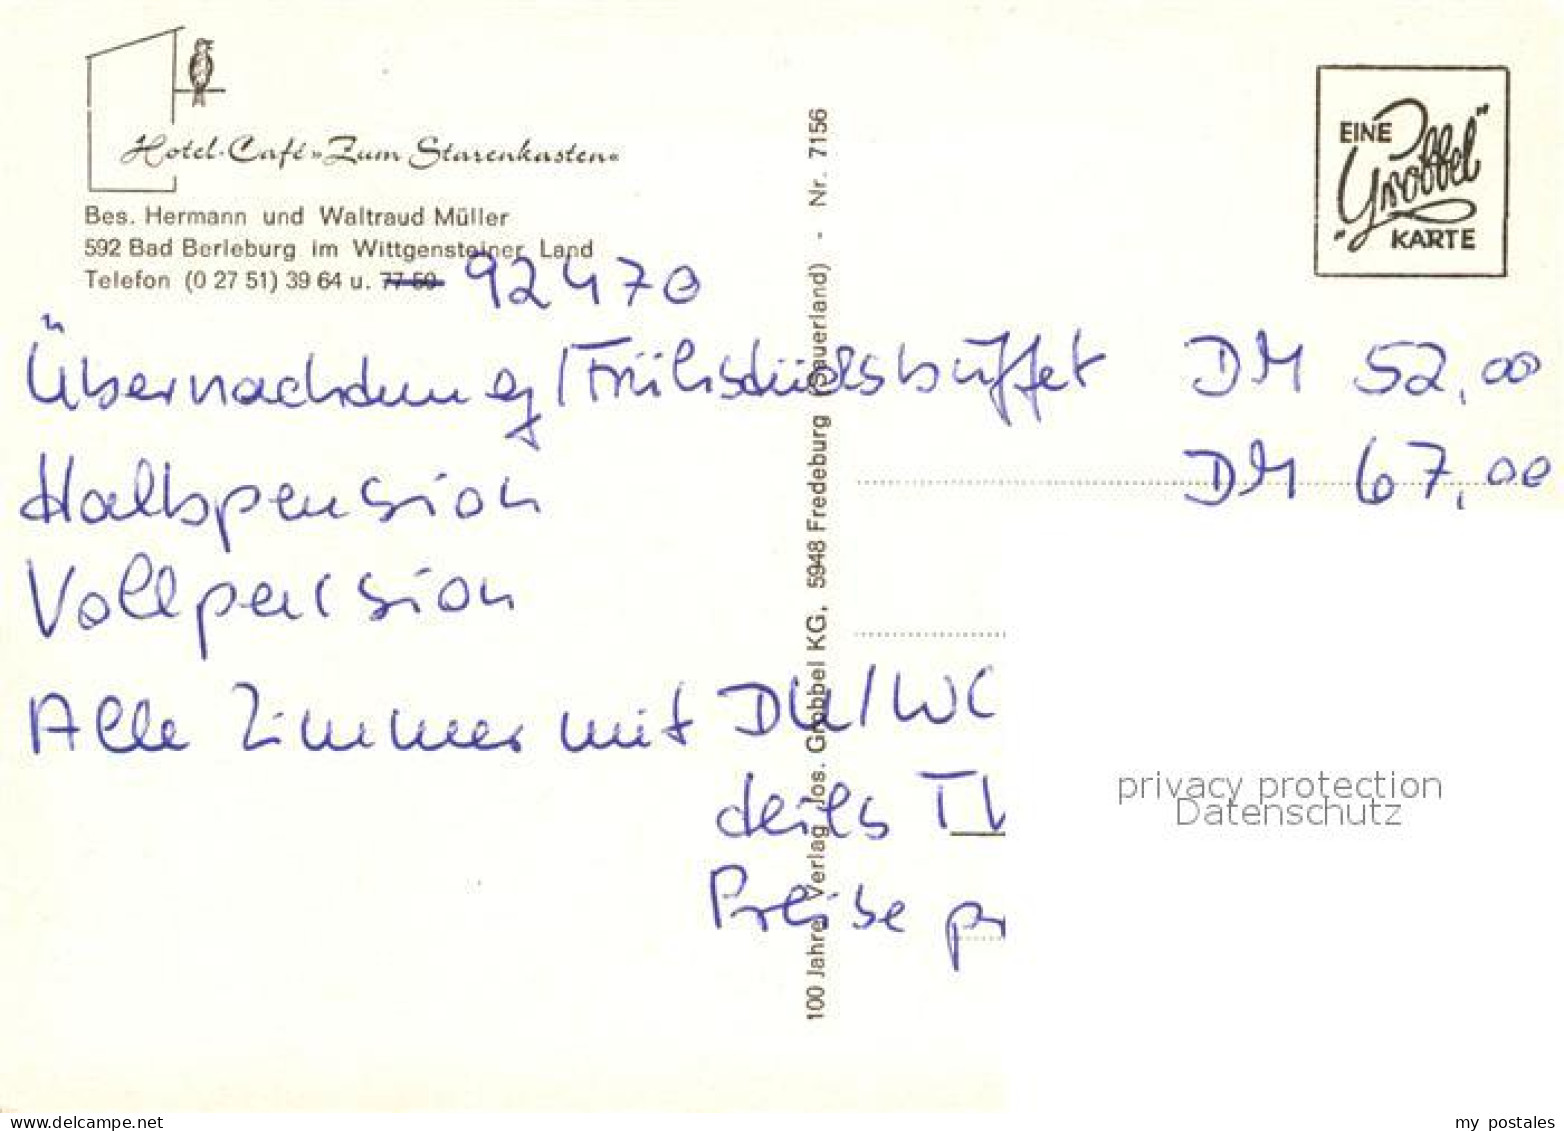 Hotel-Café »Zum Starenkasten«
Bes. Hermann und Waltraud Müller
592 Bad Berleburg im Wittgensteiner Land
Telefon (0 27 51) 39 64 u. 77 50 92470
EINE
"Grobbel"
KARTE
Übernachtung/Frühstücksbüffet DM 52,00
Halbpension DM 67,00
Vollpension
Alle Zimmer mit DU/WC
teils
Preise
100 Jahre Verlag Jos. Grobbel KG, 5948 Fredeburg (Sauerland) - Nr. 7156
privacy protection
Datenschutz
www.delcampe.net
my postales